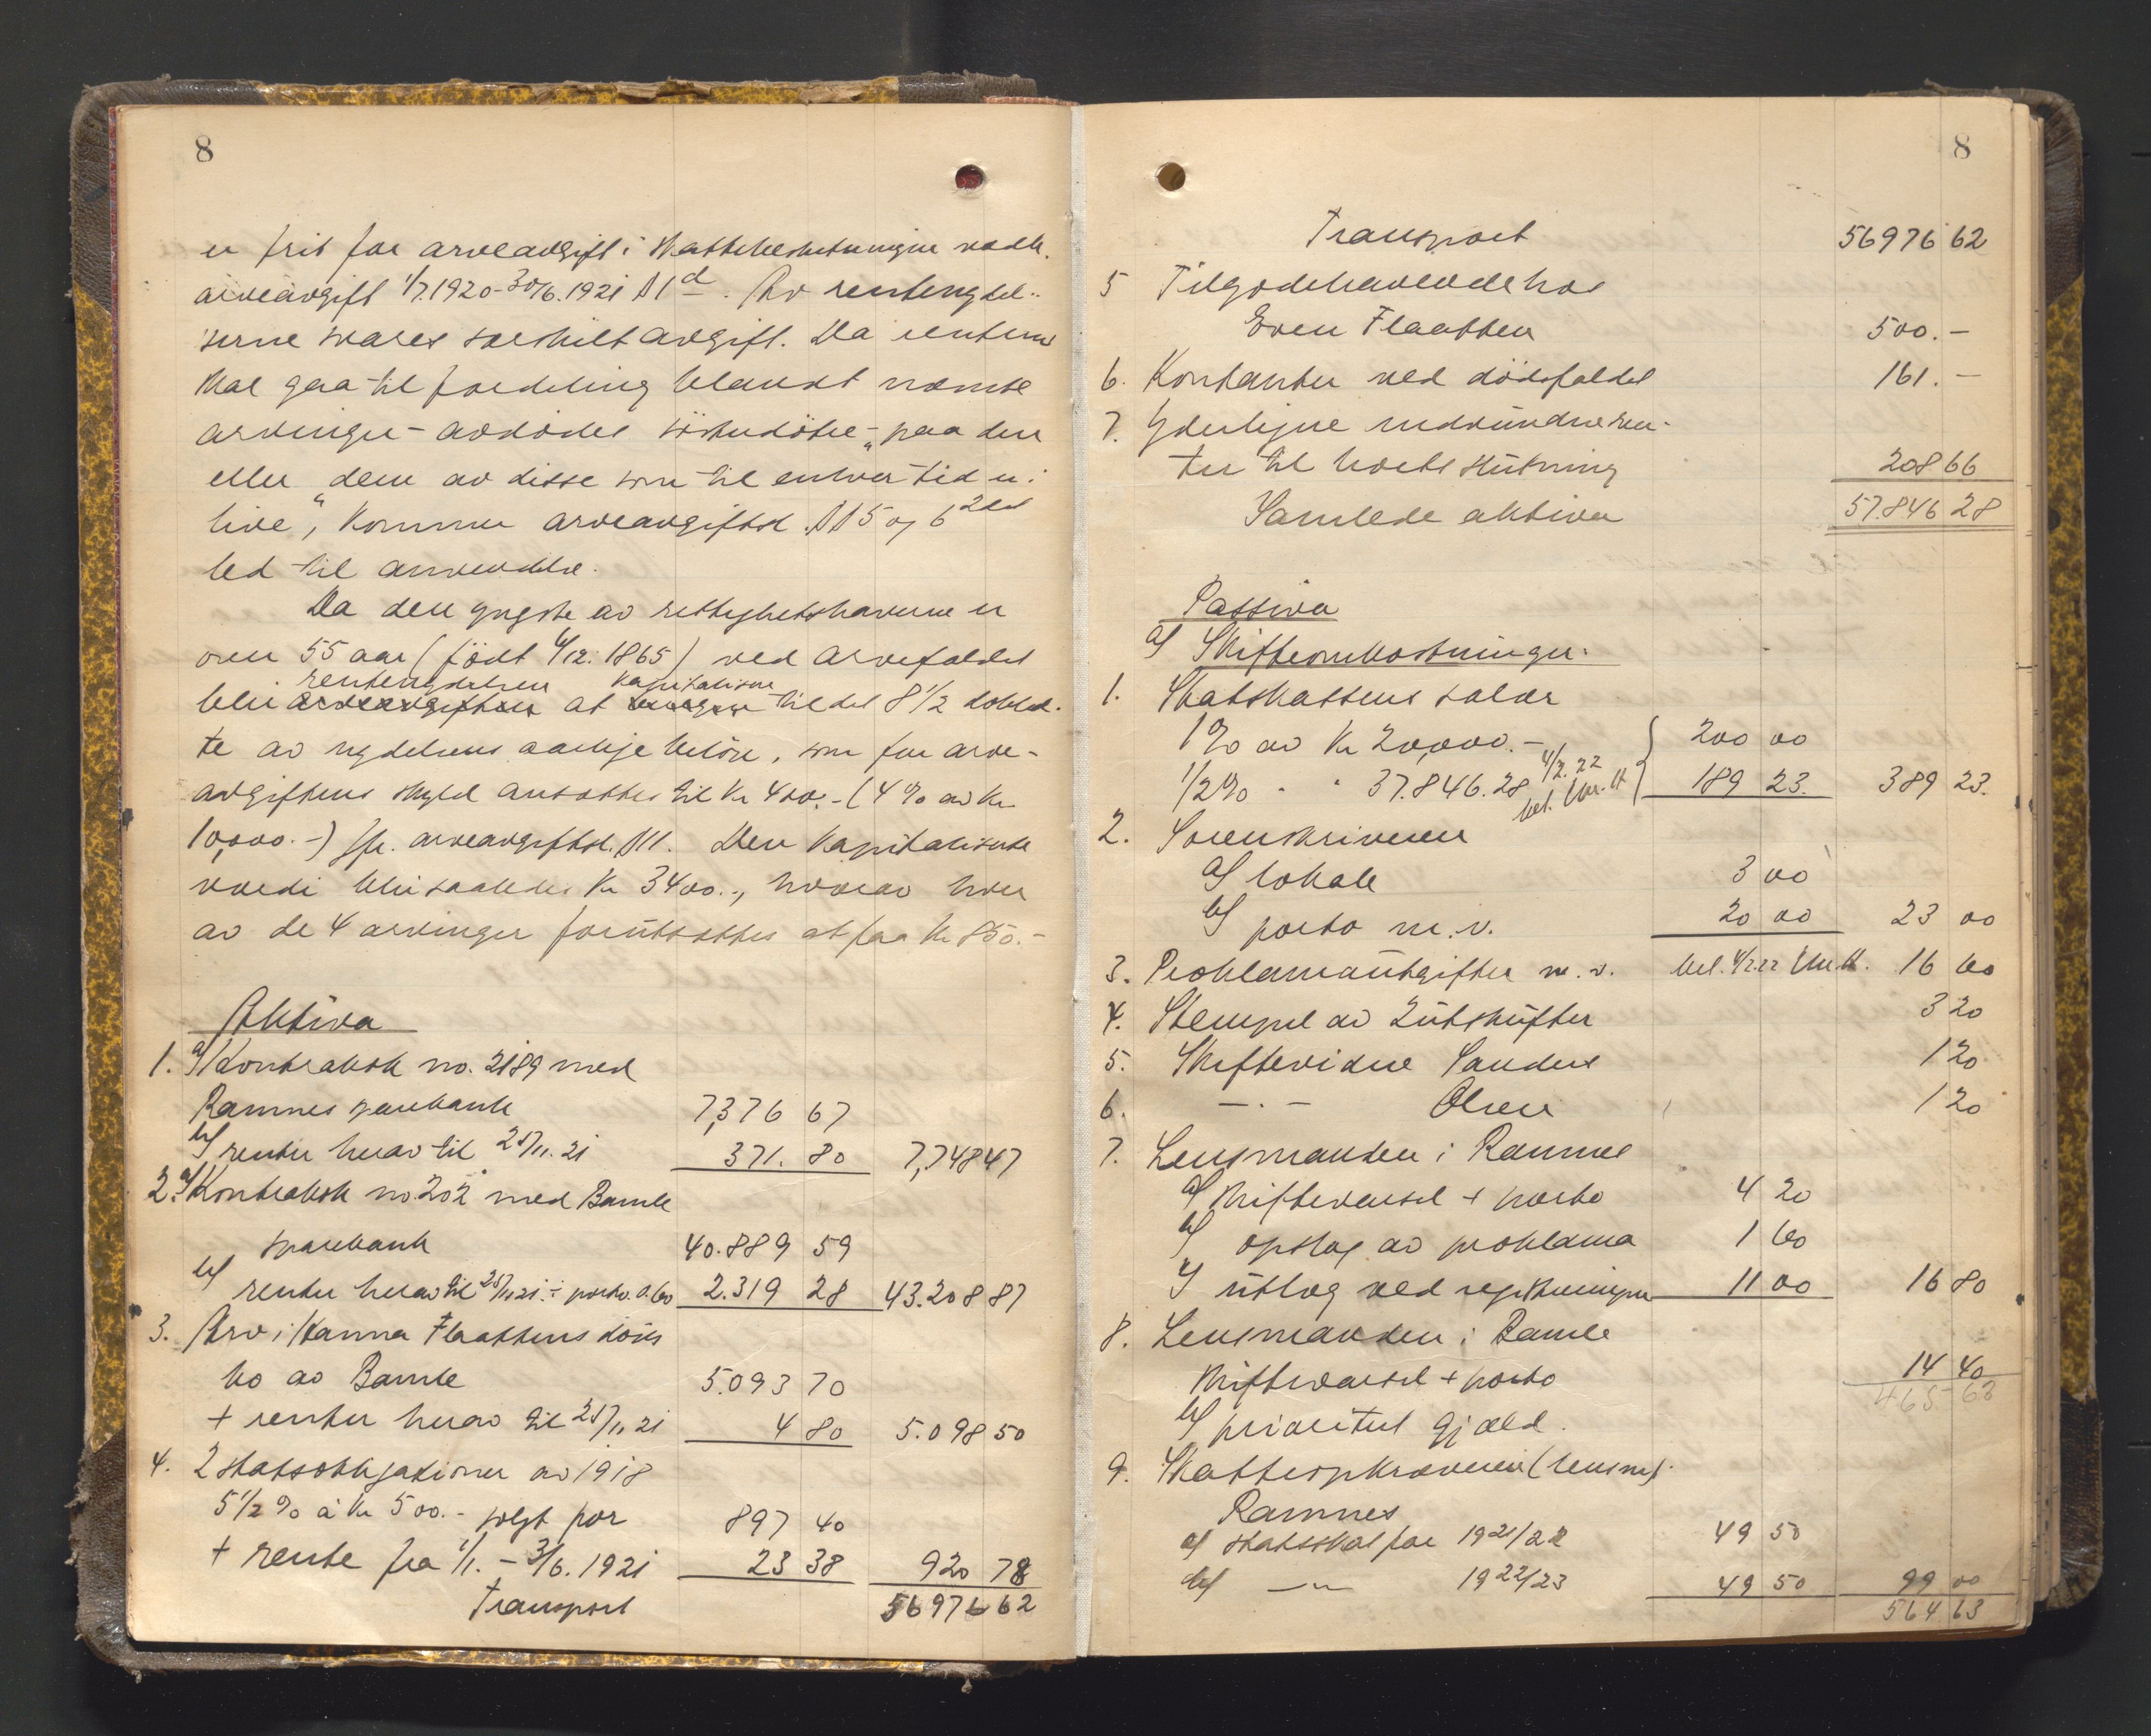 8
er frit for arveavgift i skattebeslutningen vedk.
arveavgift 1/7.1920-30/6.1921 § 1 d. Av rentenydel-
serne svares særskilt avgift. Da rentene
skal gaa til fordeling blandt nævnte
arvinger - avdødes søsterdøtre - "paa den
eller dem av disse som til enhver tid er i
live", kommer arveavgiftsl. §§ 5 og 6 2det
led til anvendelse.
Da den yngste av rettighetshaverne er
over 55 aar (født 4/12. 1865) ved arvefaldet
rentenydelsen kapitalisere
blir arveavgiften at til det 8 1/2 dobbel-
te av nydelsens aarlige beløp, som for arve-
avgiftens skyld ansættes til Kr 400.- (4 % av Kr
10,000.-) jfr. arveavgiftsl. § 11. Den kapitaliserte
værdi blir saaledes Kr 3400.-, hvorav hver
av de 4 arvinger forutsættes at faa Kr 850.-
Aktiva
1. a) Kontrabok no. 2189 med
Ramnes sparebank 7,376 67
b) renter herav til 25/11. 21 371. 80 7,748 47
2. a) Kontrabok no 202 med Bamle
sparebank 40.889 59
b) renter herav til 25/11 21 ÷ porto 0.60 2.319 28 43.208 87
3. Arv i Hanna Flaattens døds
bo av Bamle 5.093 70
+ renter herav til 25/11 21 4 80 5.098 50
4. 2 statsobligationer av 1918
5 1/2 % à Kr 500.- solgt for 897 40
+ rente fra 1/1. - 3/6. 1921 23 38 920 78
Transport 56976 62
8
Transport 56976 62
5 Tilgodehavende hos
Even Flaatten 500.-
6. Kontanter ved dødsfaldet 161.-
7. Yderligere indvundne ren-
ter til boets slutning 208 66
Samlede aktiva 57.846 28
Passiva
a) Skifteomkostninger.
1. Statskassens salær
1 % av Kr 20,000.- 200 00
1/2 % " " 37.846.28 4/2. 22 189 23. 389 23.
2. Sorenskriveren
a) lokale 3 00
b) porto m.v. 20 00 23 00
3. Proklamautgifter m.v. bet. 4/2.22 16 60
4. Stempel av 2 utskrifter 3 20
5. Skiftevidne Sanden 1 20
6. -.- Olsen 1 20
7. Lensmanden i Ramnes
a) skiftevarsel + porto 4 20
b) opslag av proklama 1 60
c) utlæg ved registreringen 11 00 16 80
8. Lensmanden i Bamle
skiftevarsel + porto 14 40
465 63
b) prioritert gjæld.
9. Skatteopkræveren (lensm.)
Ramnes
a) statsskat for 1921/22 49 50
b) -"- 1922/23 49 50 99 00
564 63